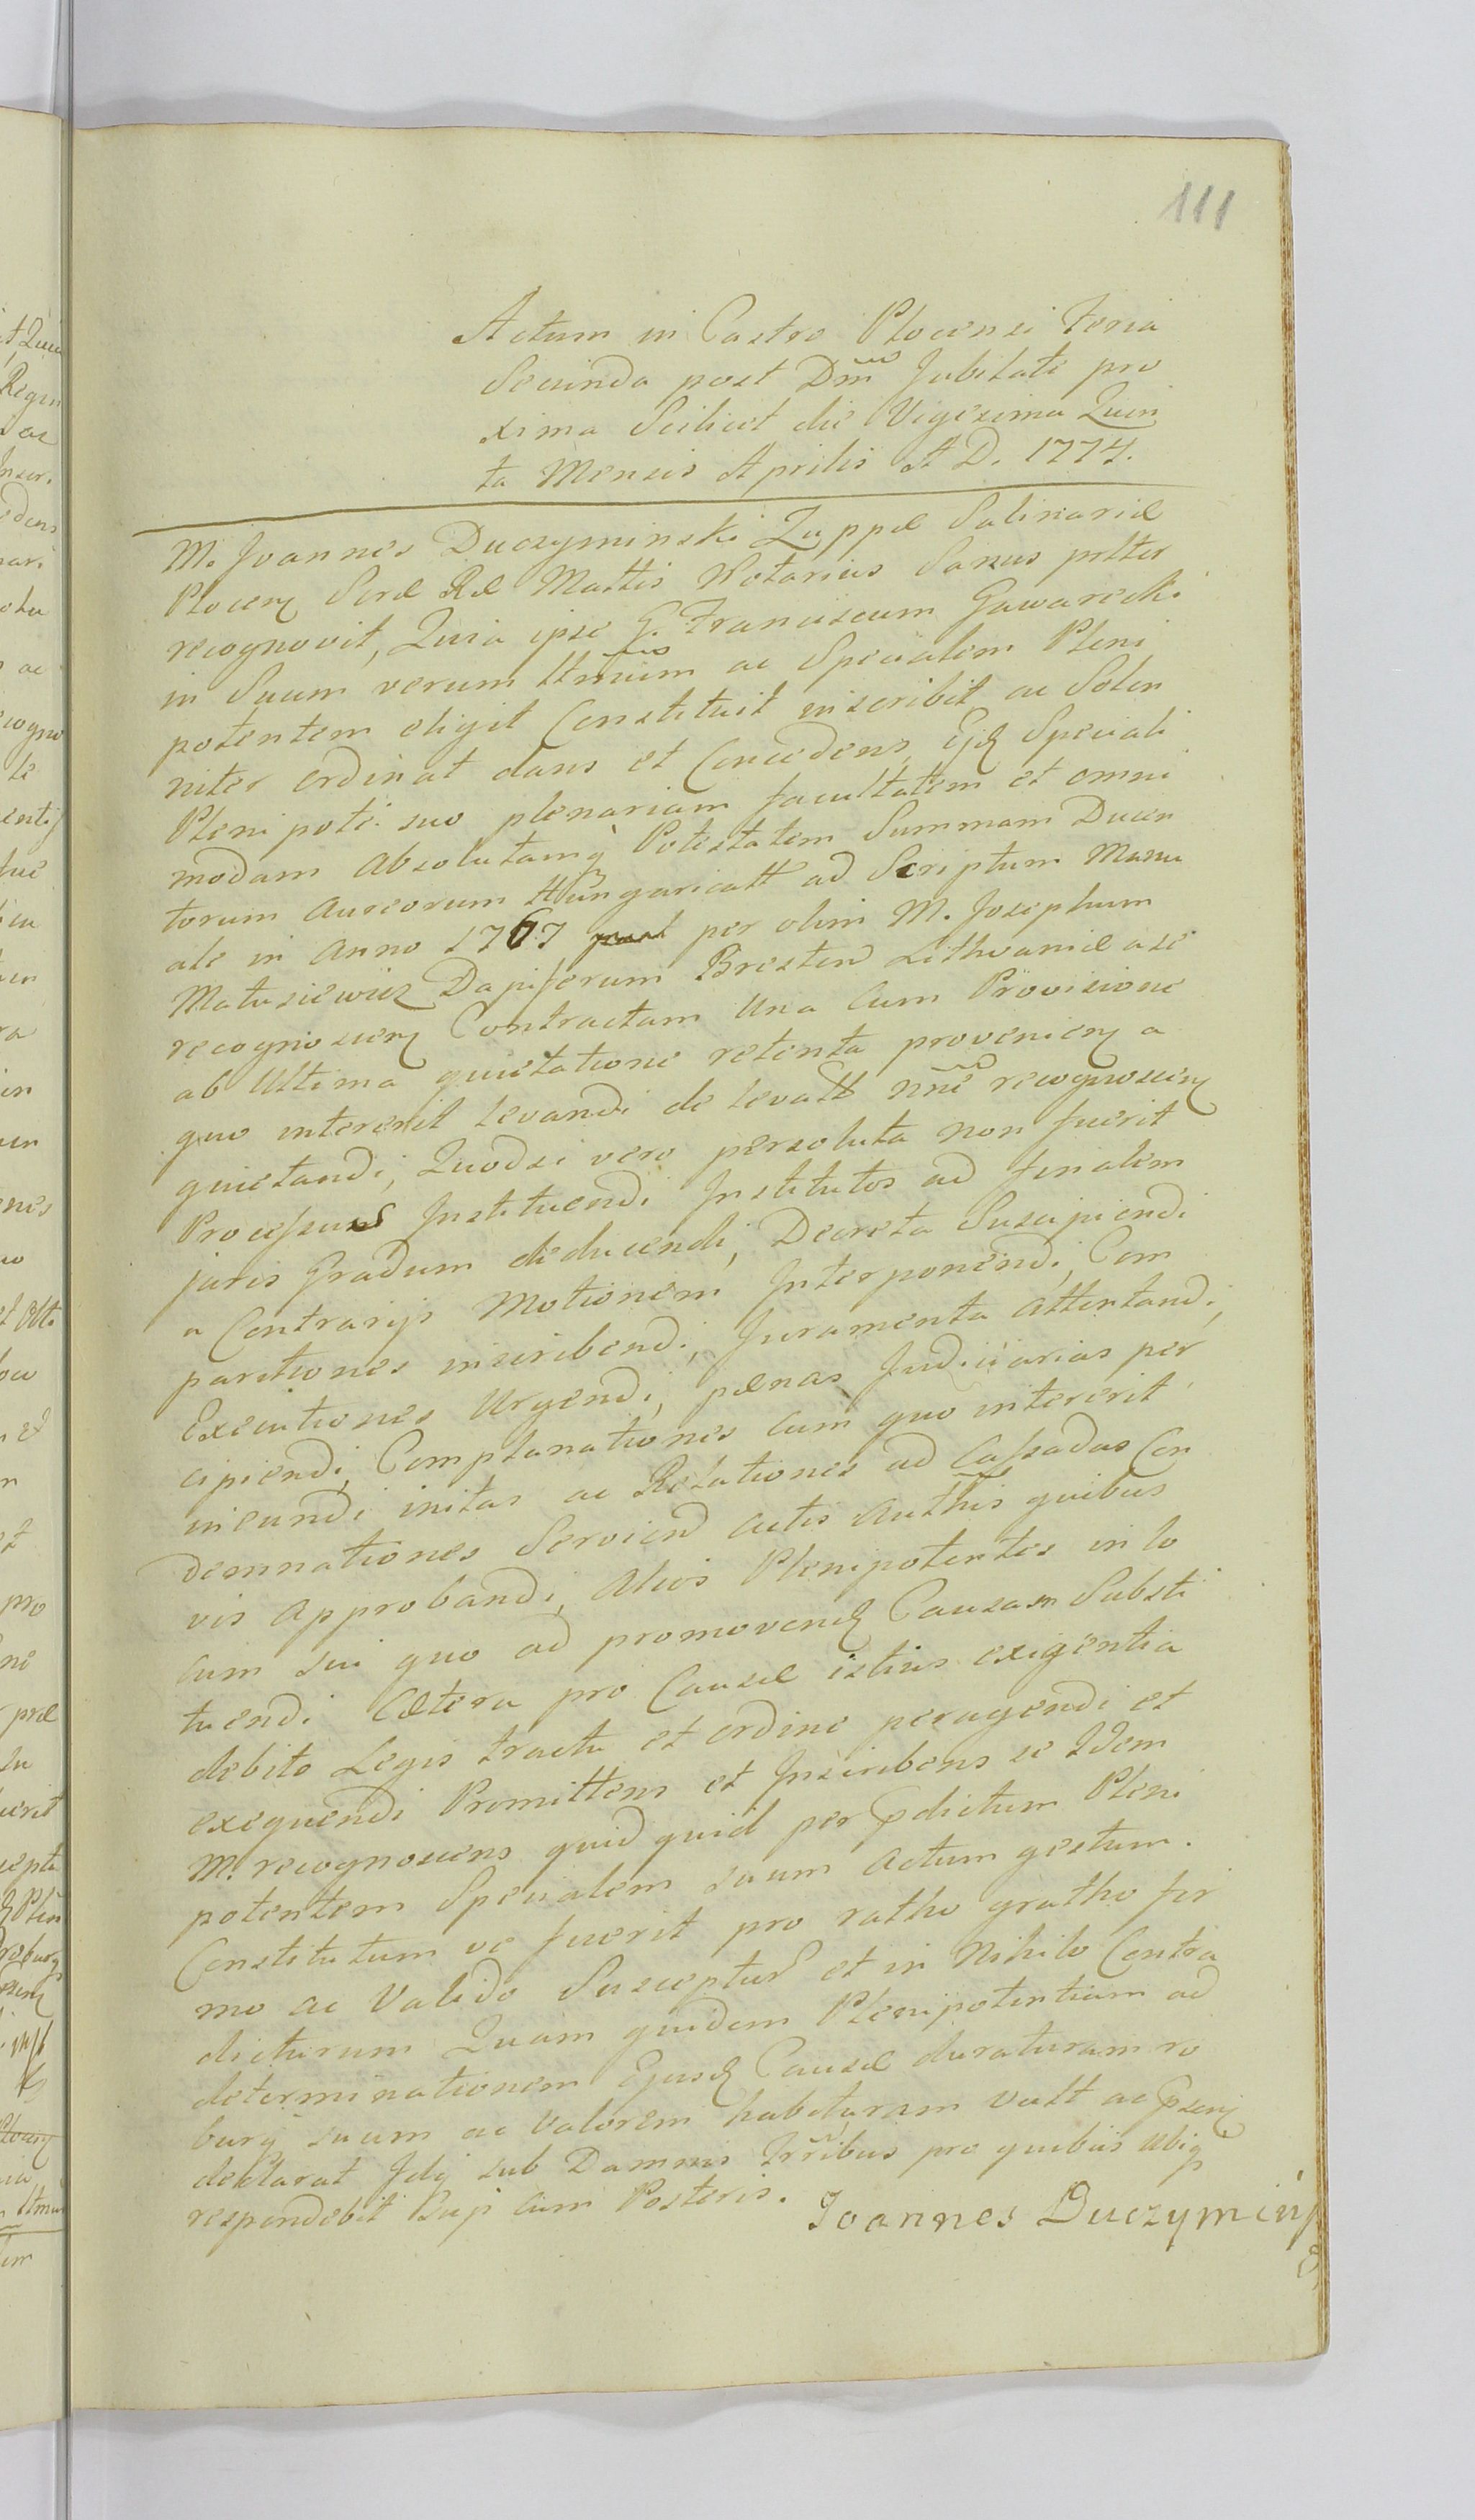 111
Actum in Castro Plocensi Feria
Secunda post Dm̃ Jubilate pro
xima Scilicet die Vigesima Quin
ta Mensis Aprilis A D. 1774.
M. Joannes Duczyminski Zuppæ Salinariæ
Plocen Seræ Ræ Mattis Notarius Sanus pltter
recognovit, Quia ipse G. Franciscum Gawarecki
in Suum verum lttmũm ac Specialem Pleni
potentem eligit Constituit inscribit ac Solen
niter ordinat dans et Concedens, Ejd Speciali
Plenipoti suo plenariam facultatem et omni
modam Absolutamq Potestatem Summam Ducen
torum Aureorum Hungaricall ad Scriptum Manu
ale in Anno 1767 per olim M. Josephum
Matusiewicz Dapiferum Bresten Lithvaniæ a se
recognoscen Contractam Una Cum Provisione
ab Ultima quietatione retenta provenien a
quo intererit levandi de levatt nñe recognoscen
quietandi, Quodsi vero persoluta non fuerit
Processus Instituendi Institutos ad finalem
juris Gradum deducendi, Decreta Suscipiendi
a Contrarijs Motionem Interponendi, Com
paritiones inscribendi, Juramenta attentandi,
Executiones Urgendi, pænas Judiciarias per
cipiendi, Complanationes cum quo intererit
ineundi initas ac Relationes ad Cassadas Con
demnationes Serviend actis Authis quibus
vis Approbandi, Alios Plenipotentes in lo
cum sui quo ad promovend Causam Substi
tuendi Cætera pro Causæ istius exigentia
debito Legis tractu et ordine peragendi et
exequendi Promittens et Inscribens se Idem
M. recognoscens quid quid per pdictum Pleni
potentem Specialem suum Actum gestum.
Constitutum ve fuerit pro ratho gratho fir
mo ac Valido Suscepturu et in Nihilo Contra
dicturum Quam quidem Plenipotentiam ad
determinationem Ejusd Causæ duraturam ro
burq suum ac Valorem habituram vult ac psen
declarat Idq sub Damnis Irr̃ibus pro quibus ubiq
respondebit Suis Cum Posteris.
Joannes Duczymiń